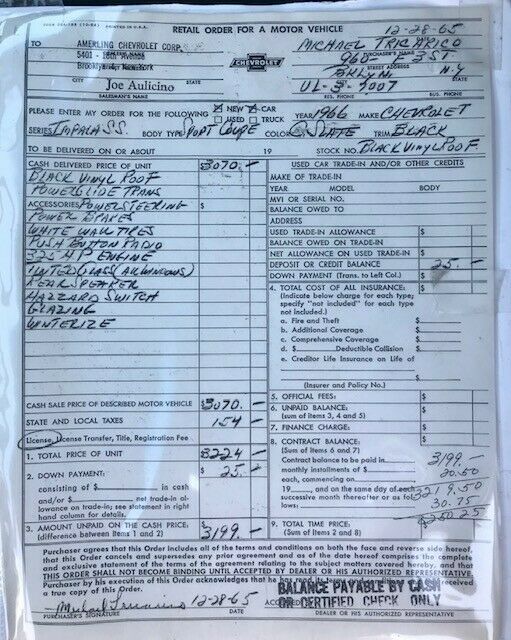 RETAIL ORDER FOR A MOTOR VEHICLE
PRINTED IN U.S.A.
12-28-65
TO AMERLING CHEVROLET CORP.
5401 - 18th Avenue
Brooklyn 4, New York
CHEVROLET
MICHAEL TRICARICO
PURCHASER'S NAME
960 - 3 ST
STREET ADDRESS
BKLYN N.Y
CITY STATE
STATE
Joe Aulicino
SALESMAN'S NAME
UL-8-5007
RES. PHONE BUS. PHONE
PLEASE ENTER MY ORDER FOR THE FOLLOWING NEW CAR
USED TRUCK
YEAR 1966 MAKE CHEVROLET
SERIES IMPALA S.S. BODY TYPE SPORT COUPE COLOR SLATE TRIM BLACK
TO BE DELIVERED ON OR ABOUT 19 STOCK NO. BLACK VINYL ROOF
CASH DELIVERED PRICE OF UNIT $3070.-
BLACK VINYL ROOF
POWERGLIDE TRANS
ACCESSORIES POWER STEERING $
POWER BRAKES
WHITE WALL TIRES
PUSH BUTTON RADIO
325 HP ENGINE
TINTED GLASS (ALL WINDOWS)
REAR SPEAKER
HAZZARD SWITCH
GLAZING
WINTERIZE
CASH SALE PRICE OF DESCRIBED MOTOR VEHICLE $3070.-
STATE AND LOCAL TAXES 154 -
License, License Transfer, Title, Registration Fee
1. TOTAL PRICE OF UNIT $3224 -
2. DOWN PAYMENT: $25.-
consisting of $ in cash
and/or $ net trade-in al-
lowance on trade-in; see statement in right
hand column for details.
3. AMOUNT UNPAID ON THE CASH PRICE: $3199.-
(difference between Items 1 and 2)
USED CAR TRADE-IN AND/OR OTHER CREDITS
MAKE OF TRADE-IN
YEAR MODEL BODY
MVI OR SERIAL NO.
BALANCE OWED TO
ADDRESS
USED TRADE-IN ALLOWANCE $
BALANCE OWED ON TRADE-IN
NET ALLOWANCE ON USED TRADE-IN $
DEPOSIT OR CREDIT BALANCE 25.-
DOWN PAYMENT (Trans. to Left Col.) $
4. TOTAL COST OF ALL INSURANCE: $
(Indicate below charge for each type;
specify "not included" for each type
not included.)
a. Fire and Theft $
b. Additional Coverage $
c. Comprehensive Coverage $
d. $ Deductible Collision $
e. Creditor Life Insurance on Life of
$
(Insurer and Policy No.)
5. OFFICIAL FEES: $
6. UNPAID BALANCE: $
(sum of items 3, 4 and 5)
7. FINANCE CHARGE: $
8. CONTRACT BALANCE: $
(Sum of items 6 and 7)
Contract balance to be paid in 3199.-
monthly installments of $ 20.50
each, commencing on
19 , and on the same day of each
successive month thereafter or as fol- 3219.50
lows: 30.75
$3250.25
9. TOTAL TIME PRICE: $
(Sum of Items 2 and 8)
Purchaser agrees that this Order includes all of the terms and conditions on both the face and reverse side hereof,
that this Order cancels and supersedes any prior agreement and as of the date hereof comprises the complete
and exclusive statement of the terms of the agreement relating to the subject matters covered hereby, and that
THIS ORDER SHALL NOT BECOME BINDING UNTIL ACCEPTED BY DEALER OR HIS AUTHORIZED REPRESENTATIVE.
Purchaser by his execution of this Order acknowledges that he has read its terms and
a true copy of this Order.
BALANCE PAYABLE BY CASH
OR CERTIFIED CHECK ONLY
12-28-65
PURCHASER'S SIGNATURE DATE DEALER OR HIS AUTHORIZED REPRESENTATIVE